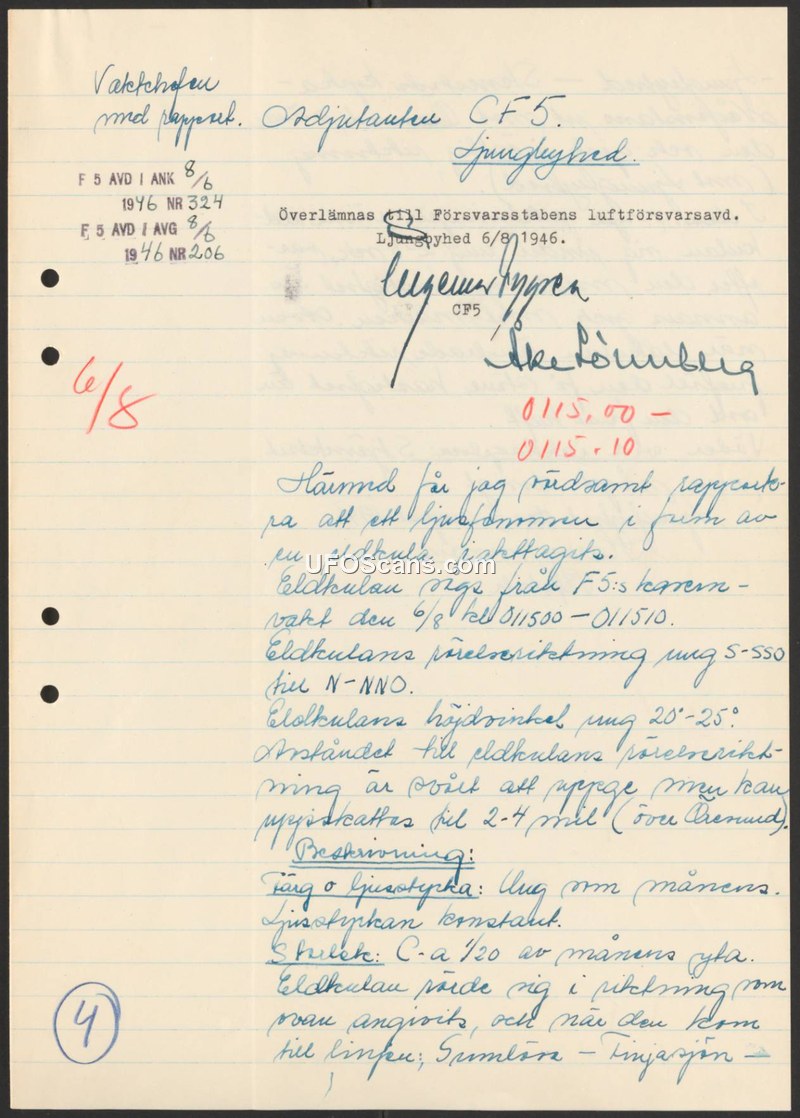 Vaktchefen
med rapport.
Adjutanten CF5.
Ljungbyhed.
F 5 AVD I ANK 8/6
1946 NR 324
F 5 AVD I AVG 8/8
1946 NR 206
Överlämnas till Försvarsstabens luftförsvarsavd.
Ljungbyhed 6/8 1946.
CF5
Åke Lönnberg
6/8
0115,00 –
0115.10
Härmed får jag vördsamt rapporte-
ra att ett ljusfenomen i form av
en eldkula iakttagits.
UFOScans.com
Eldkulan sågs från F5:s kasern-
vakt den 6/8 kl 011500 – 011510.
Eldkulans rörelseriktning ung S-SSO
till N-NNO.
Eldkulans höjdvinkel ung 20°-25°.
Avståndet till eldkulans rörelserikt-
ning är svårt att uppge men kan
uppskattas til 2-4 mil (över Öresund).
Beskrivning:
Färg o ljusstyrka: Ung som månens.
Ljusstyrkan konstant.
Storlek: C-a 1/20 av månens yta.
Eldkulan rörde sig i riktning som
ovan angivits, och när den kom
till linjen; Gumlösa – Finjasjön –
4